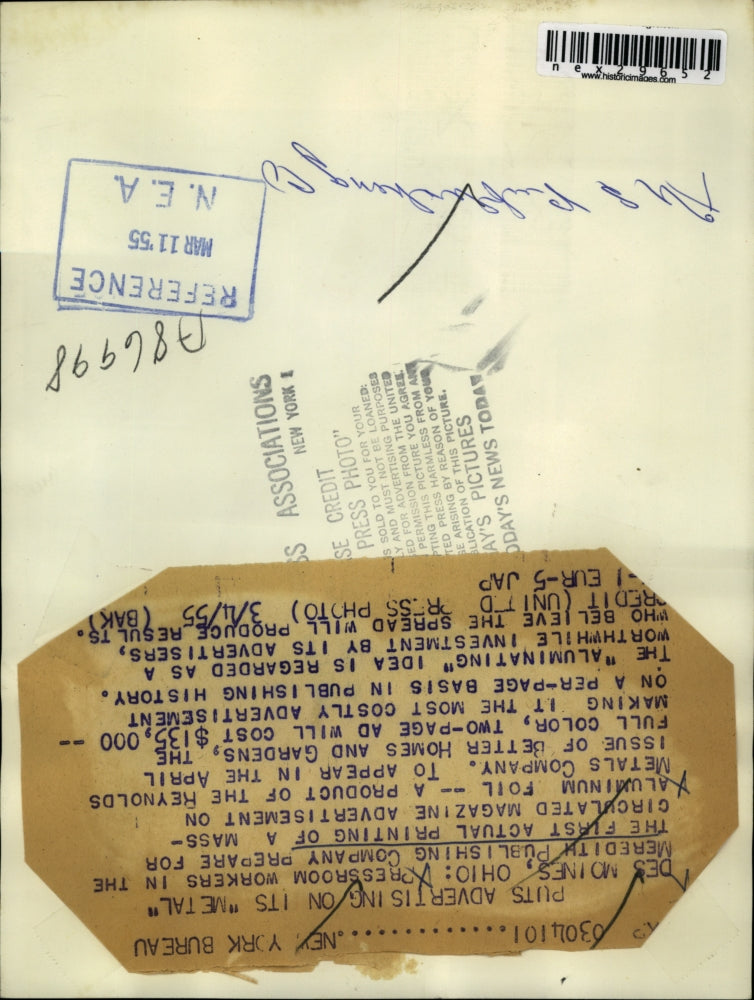 nex29652
www.historicimages.com
REFERENCE
MAR 11 '55
N. E. A.
A86998
ASSOCIATIONS
NEW YORK
CREDIT
PRESS PHOTO"
SOLD TO YOU FOR YOUR
AND MUST NOT BE LOANED:
FOR ADVERTISING PURPOSES
PERMISSION FROM THE UNITED
THIS PICTURE YOU AGREE
PRESS HARMLESS FROM ANY
ARISING BY REASON OF YOUR
OF THIS PICTURE.
PICTURES
NEWS TODAY
0304101..............NEW YORK BUREAU
PUTS ADVERTISING ON ITS "METAL"
DES MOINES, OHIO: PRESSROOM WORKERS IN THE
MEREDITH PUBLISHING COMPANY PREPARE FOR
THE FIRST ACTUAL PRINTING OF A MASS-
CIRCULATED MAGAZINE ADVERTISEMENT ON
ALUMINUM FOIL -- A PRODUCT OF THE REYNOLDS
METALS COMPANY. TO APPEAR IN THE APRIL
ISSUE OF BETTER HOMES AND GARDENS, THE
FULL COLOR, TWO-PAGE AD WILL COST $135,000 --
MAKING IT THE MOST COSTLY ADVERTISEMENT
ON A PER-PAGE BASIS IN PUBLISHING HISTORY.
THE "ALUMINATING" IDEA IS REGARDED AS A
WORTHWHILE INVESTMENT BY ITS ADVERTISERS,
WHO BELIEVE THE SPREAD WILL PRODUCE RESULTS.
CREDIT (UNITED PRESS PHOTO) 3/4/55 (BAK)
EUR-5 JAP